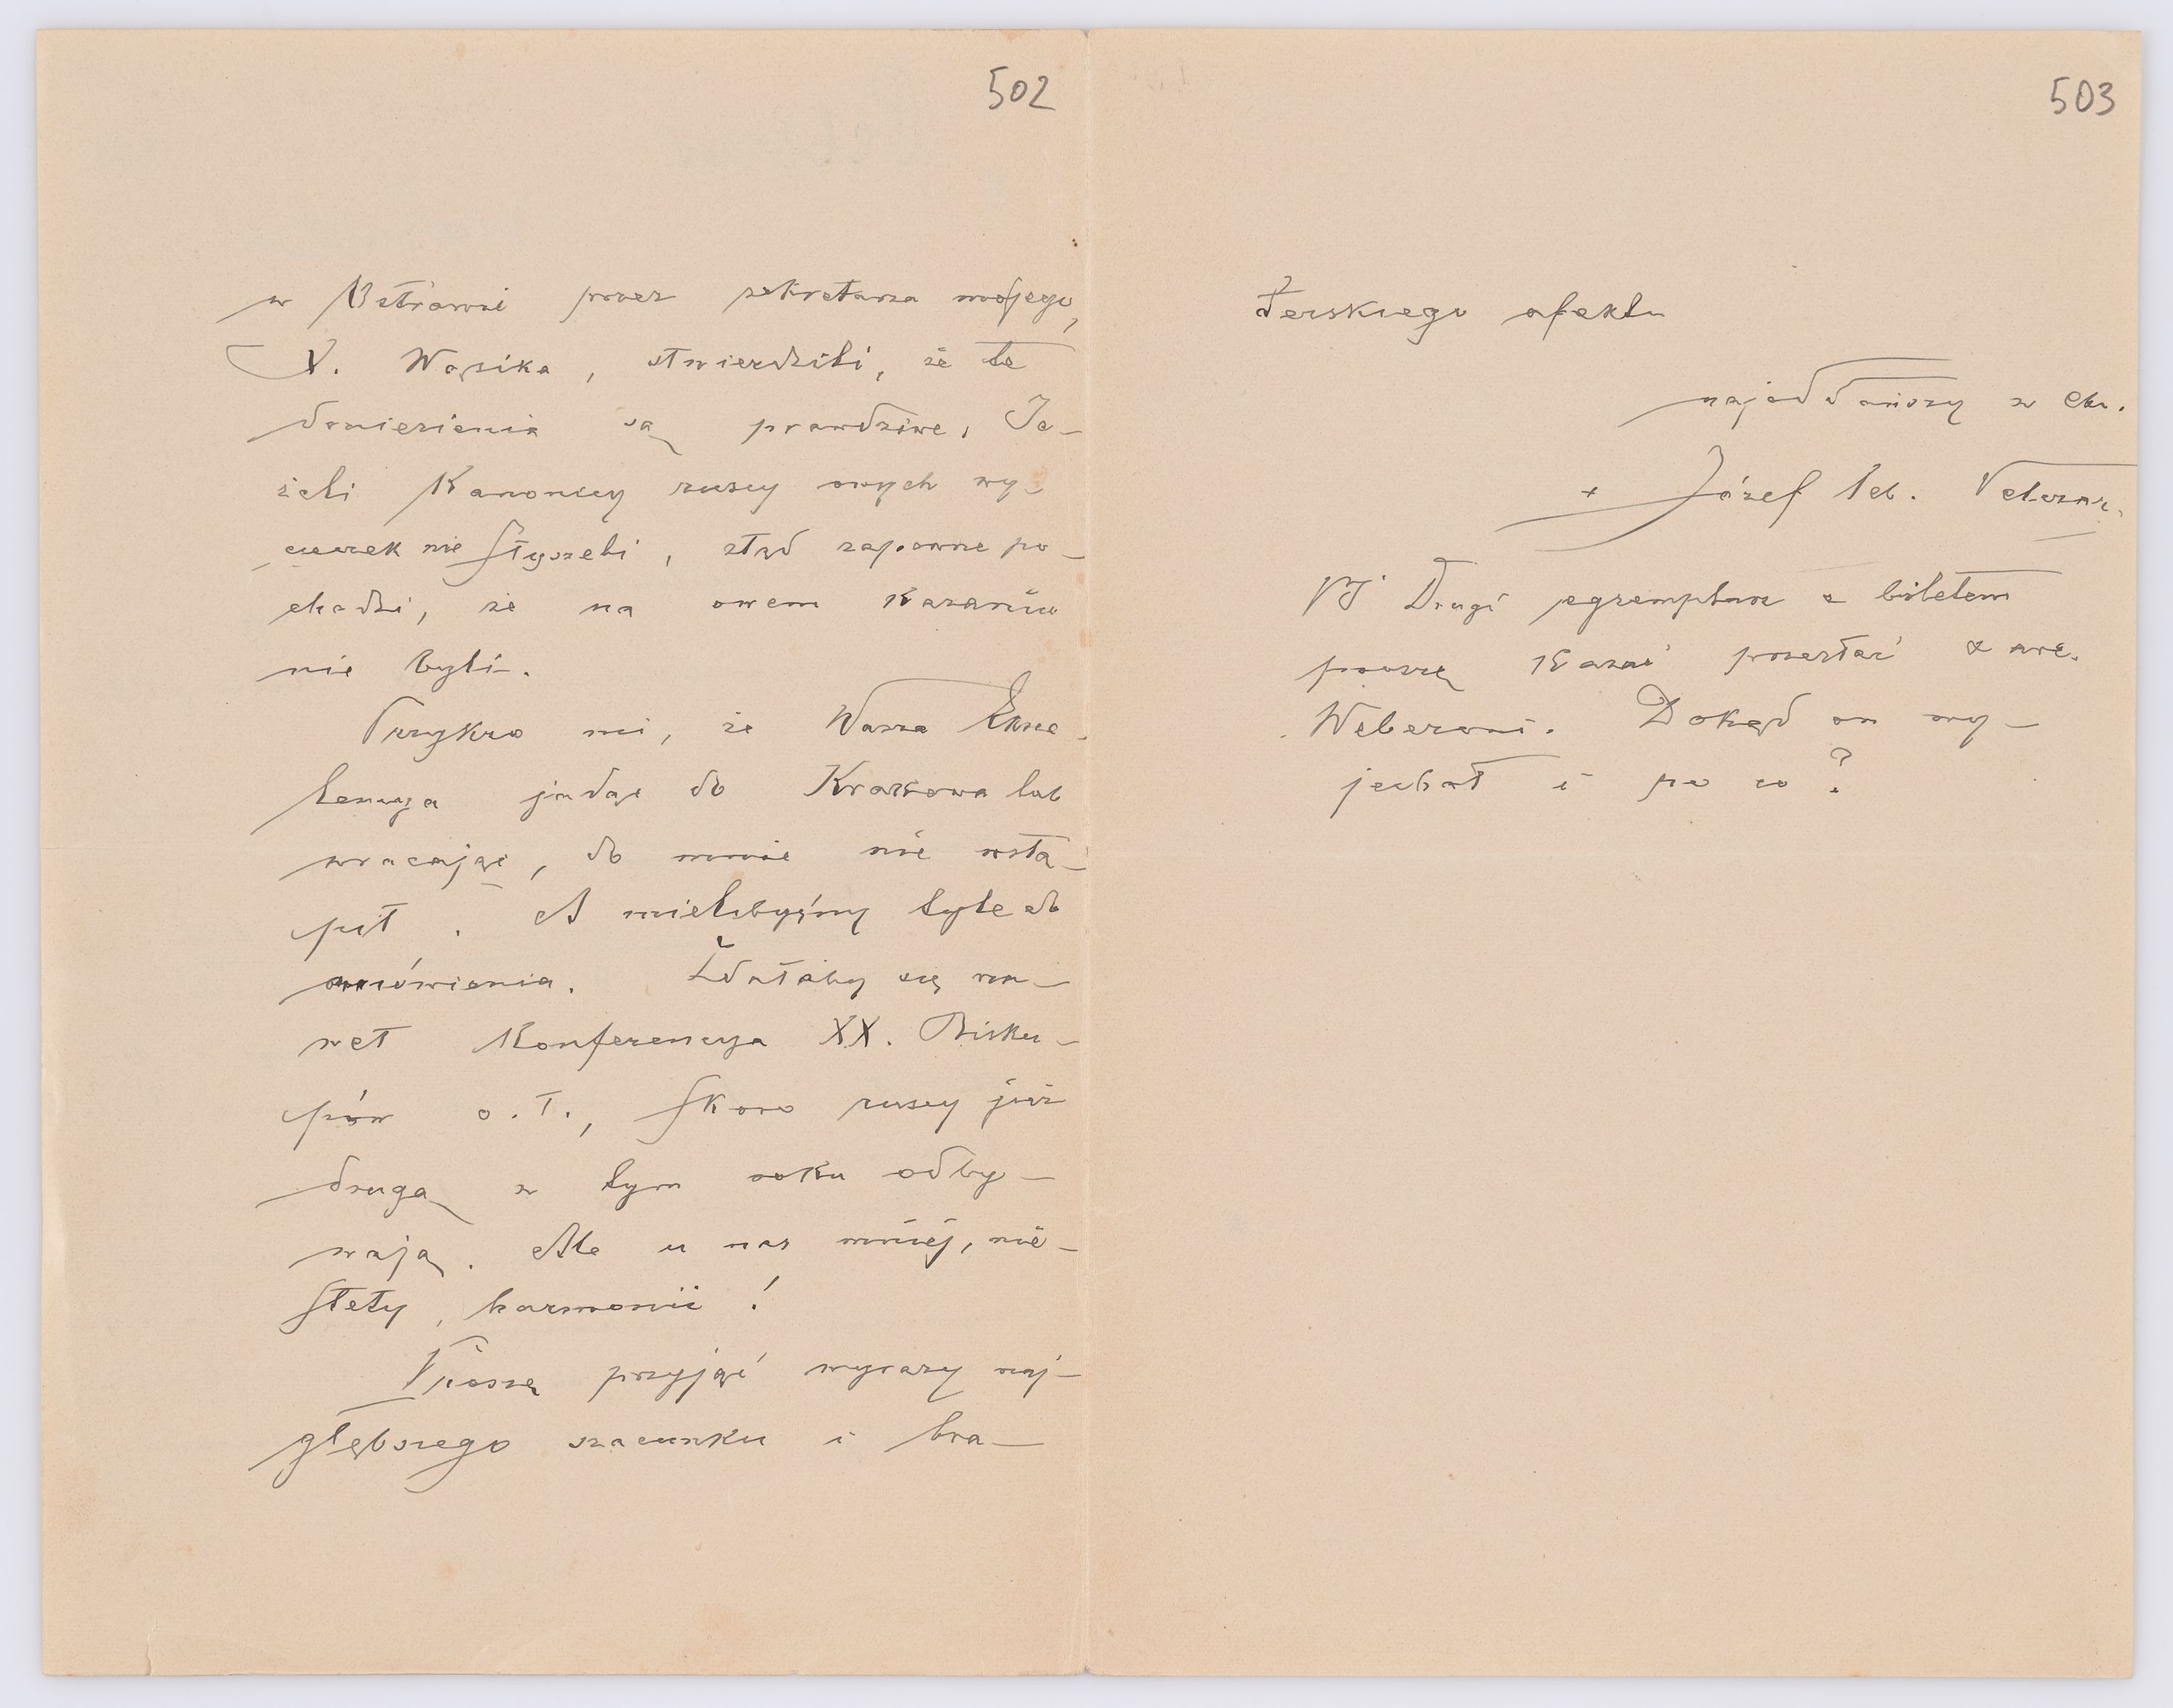 502
w Bstrawie przez sekretarza mojego,
X. Wąsika, stwierdzili, że te
doniesienia są prawdziwe, Je-
żeli Kanonicy ruscy owych wy-
cieczek nie słyszeli, ztąd zapewne po-
chodzi, że na owem Kazaniu
nie byli.
Przykro mi, że Wasza Ekse-
lencya jadąc do Krakowa lub
wracając, do mnie nie wstą-
pił. A mielibyśmy tyle do
omówienia. Zdałaby się na-
wet Konferencya XX. Bisku-
pów o. ł., skoro ruscy już
drugą w tym roku odby-
wają. Ale u nas mniej, nie-
stety, harmonii!
Proszę przyjąć wyrazy naj-
głębszego szacunku i bra-
503
terskiego afektu
najoddańszy w Chr.
+ Józef Seb. Pelczar,
PS Drugi egzemplarz z biletem
proszę Kazać przesłać X arc.
Weberowi. Dokąd on wy-
jechał i po co?